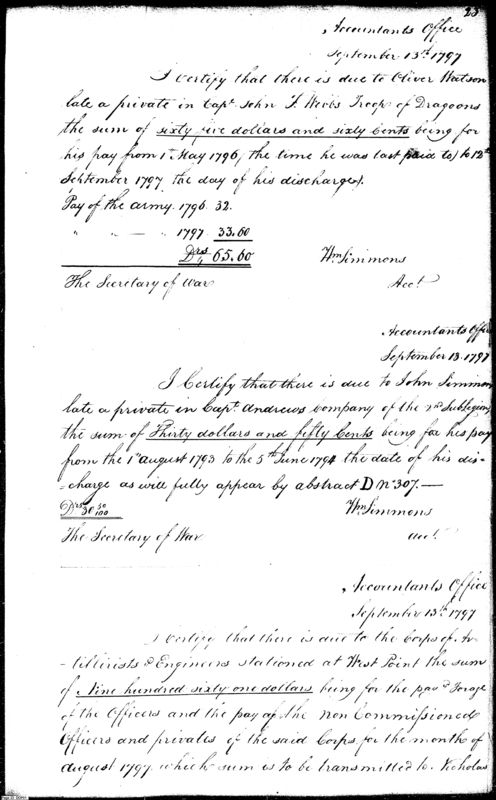 25
Accountants Office
September 13th 1797
I certify that there is due to Oliver Watson
late a private in Capt. John T. Webbs Troop of Dragoons
the sum of sixty five dollars and sixty Cents being for
his pay from 1st May 1796, the time he was last paid to) to 12th
September 1797 the day of his discharge).
Pay of the army. 1796. 32.
" " — " — 1797 33.60
Drs 65.60 Wm Simmons
The Secretary of War Acct
Accountants Office
September 13. 1797
I Certify that there is due to John Simmon
late a private in Capt. Andrews Company of the 2nd SubLegion
the sum of Thirty dollars and fifty Cents being for his pay
from the 1st august 1793 to the 5th June 1794 the date of his dis-
-charge as will fully appear by abstract D No 307.—
Drs 30 50/100 Wm Simmons
The Secretary of War acct
Accountants Office
September 13th 1797
I certify that there is due to the Corps of Ar-
-tillerists & Engineers stationed at West Point the sum
of Nine hundred sixty one dollars being for the pay & Forage
of the Officers and the pay of the non Commissioned
Officers and privates of the said Corps for the month of
august 1797 which sum is to be transmitted to Nicholas